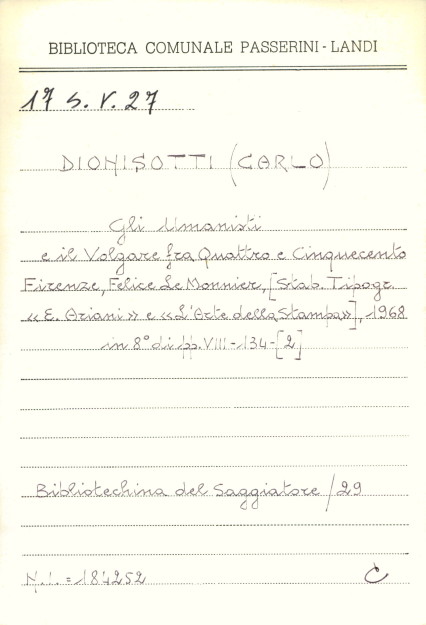 BIBLIOTECA COMUNALE PASSERINI - LANDI
17 S. V. 27
DIONISOTTI (CARLO)
Gli Umanisti
e il Volgare fra Quattro e Cinquecento
Firenze, Felice Le Monnier, [Stab. Tipogr.
«E. Ariani» e «L'Arte della Stampa»], 1968
in 8° di pp. VIII-134-[2]
Bibliotechina del Saggiatore / 29
N.I. = 184252
C